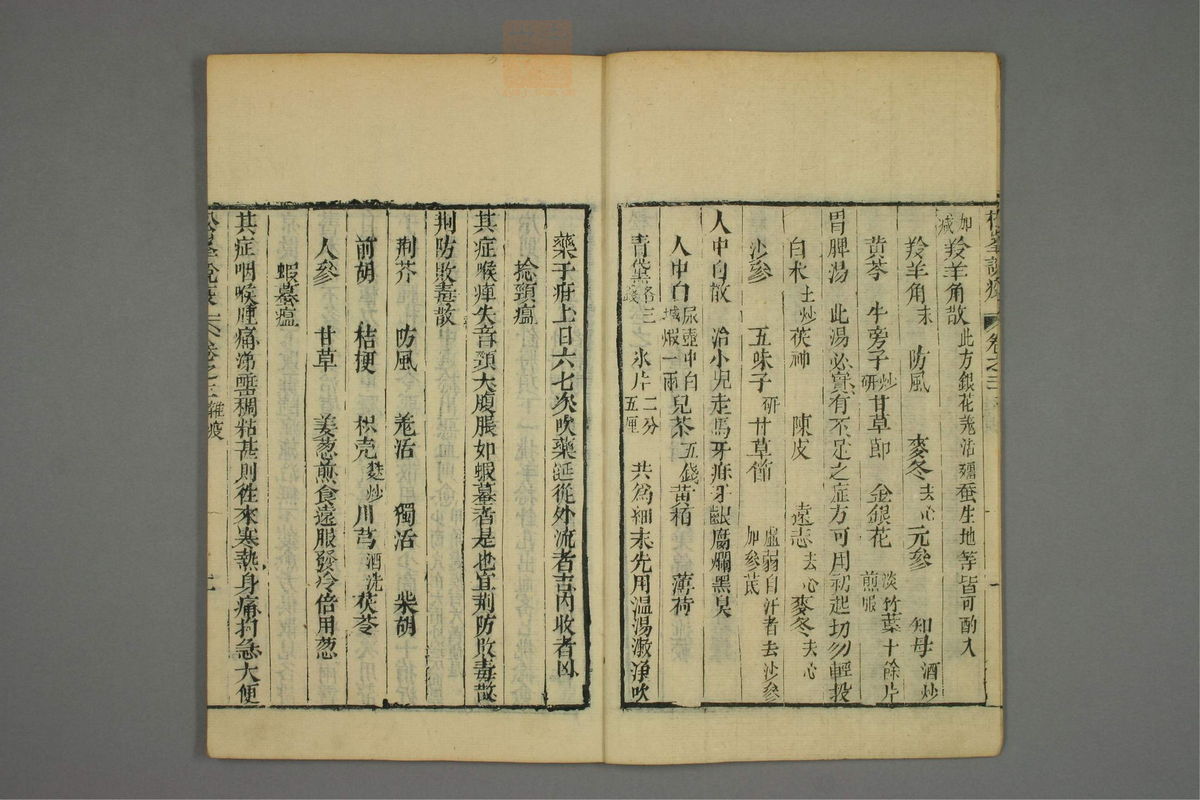 松峯說疫 卷之三
加減羚羊角散 此方銀花羗活殭蚕生地等皆可酌入
羚羊角末 防風 麥冬去心 元參 知母酒炒
黃芩 牛旁子炒研 甘草節 金銀花 淡竹葉十餘片煎服
胃脾湯 此湯必實有不足之症方可用初起切勿輕投
白朮土炒 茯神 陳皮 遠志去心 麥冬去心
沙參 五味子研 甘草節 虛弱自汗者去沙參加參芪
人中白散 治小兒走馬牙疳牙齦腐爛黑臭
人中白尿壺中白堿煆一兩 兒茶五錢 黃栢 薄荷
青黛各三錢 氷片二分五厘 共為細末先用温湯漱淨吹
藥于疳上日六七次吹藥涎從外流者吉内收者凶
捻頸瘟
其症喉痺失音頸大腹脹如蝦蟇者是也宜荆防敗毒散
荆防敗毒散
荆芥 防風 羗活 獨活 柴胡
前胡 桔梗 枳壳麩炒 川芎酒洗 茯苓
人參 甘草 姜葱煎食遠服發冷倍用葱
蝦蟇瘟
其症咽喉腫痛涕唾稠粘甚則徃來寒熱身痛拘急大便
松峯說疫 卷之三 雜疫